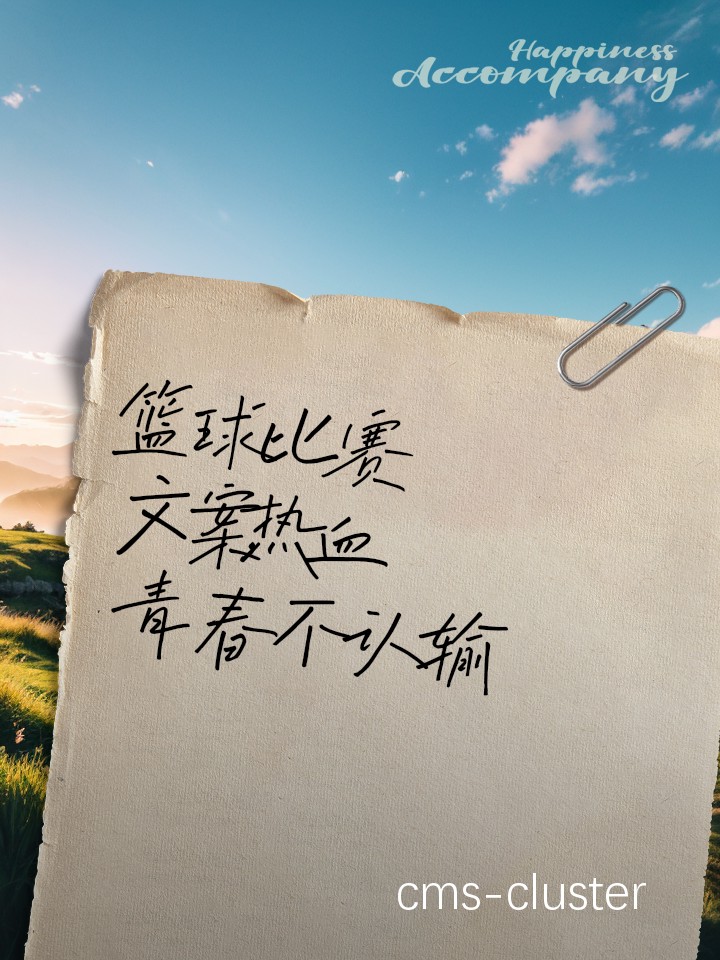 Happiness
Accompany
篮球比赛
文案热血
青春不认输
cms-cluster